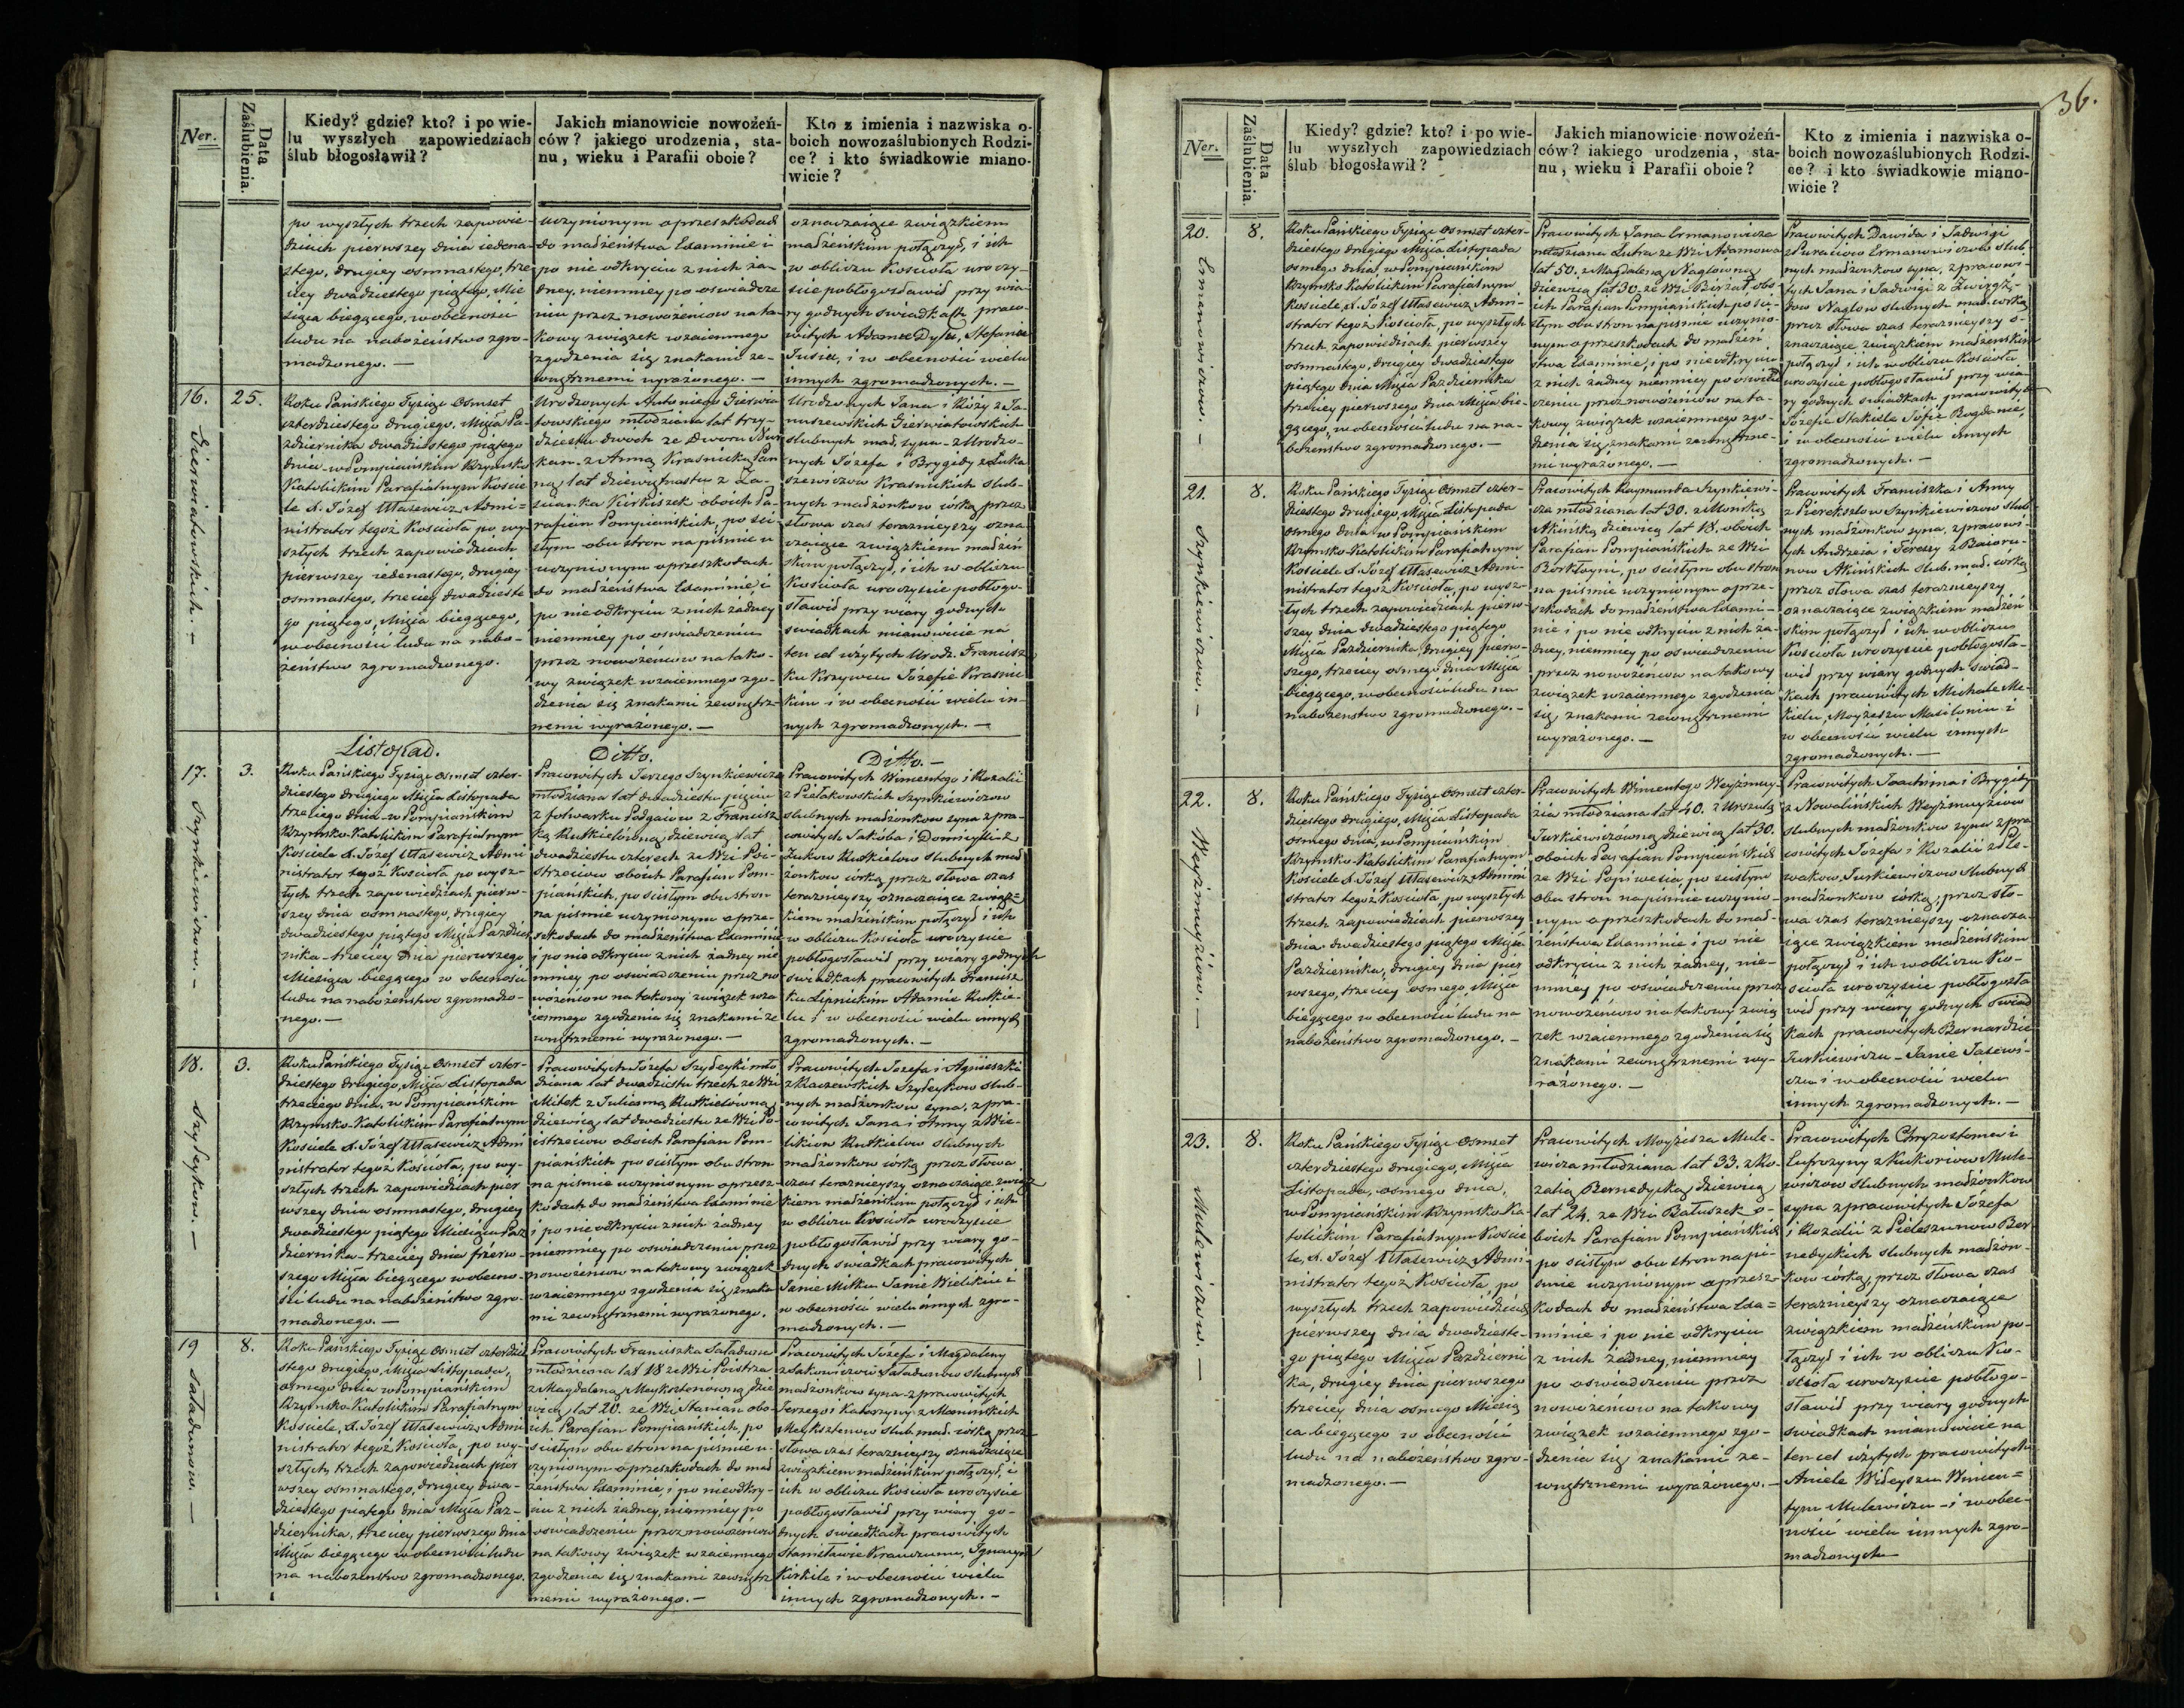 36.
Ner.
Data Zaślubienia.
Kiedy? gdzie? kto? i po wie-
lu wyszłych zapowiedziach
ślub błogosławił?
Jakich mianowicie nowożeń-
ców? jakiego urodzenia, sta-
nu, wieku i Parafii oboie?
Kto z imienia i nazwiska o-
boich nowozaślubionych Rodzi-
ce? i kto świadkowie miano-
wicie?
po wyszłych trzech zapowie-
dziach pierwszey dnia iedena-
stego, drugiey osmnastego, trze
ciey dwadziestego piątego, Mie
siąca biegącego, w obecności
ludu na nabożeństwo zgro-
madzonego. —
uczynionym o przeszkodach
do małżeństwa Examinie i
po nie odkryciu z nich ża-
dney, niemniey po oswiadcze
niu przez nowożeniow na ta-
kowy związek wzaiemnego
zgodzenia się znakami ze-
wnętrznemi wyrażonego. —
oznaczaiące związkiem
małżeńskim połączył, i ich
w obliczu Kościoła uroczy-
ście pobłogosławił przy wia-
ry godnych swiadkach praco-
witych Adamie Dyłu, Stefanie
i w obecności wielu
innych zgromadzonych. —
16.
25.
Gierwiatowskich. —
Roku Pańskiego Tysiąc Osmset
czterdziestego drugiego, Msiąca Pa-
ździernika dwadziestego piątego
dnia w Pompiańskim Rzymsko
Katolickim Parafialnym Koscie
le X. Józef Ułasewicz Admi=
nistrator tegoż Kościoła po wy-
szłych trzech zapowiedziach
pierwszey iedenastego, drugiey
osmnastego, trzeciey dwadzieste
go piątego, Msiąca biegącego,
w obecności ludu na nabo-
żeństwo zgromadzonego.
Urodzonych Antoniego Gierwia
towskiego młodziana lat trzy-
dziestu dwoch ze Dworu
kun. z Anną Krasnicką Pan
ną lat dziewiętnastu z Za-
scianka Kirkiszek oboich Pa-
rafian Pompianskich, po sci-
słym obu stron na piśmie u
uczynionym o przeszkodach
do małżeństwa Examinie, i
po nie odkryciu z nich żadney
niemniey po oswiadczeniu
przez nowożeńcow na tako-
wy związek wzaiemnego zgo-
dzenia się znakami zewnętrz-
nemi wyrażonego. —
Urodzonych Jana i Róży z Ja-
nuszewskich Gierwiatowskich
slubnych mał. syna - z Urodzo-
nych Józefa i Brygidy z Łuka
szewiczow Krasnickich slub-
nych małżonkow córką przez
słowa czas teraznieyszy ozna
czaiące związkiem małżeń
skim połączył, i ich w obliczu
Kościoła uroczyscie pobłogo-
sławił przy wiary godnych
świadkach mianowicie na
ten cel użytych Urodz. Francisz
ku Krzywcu Józefie Krasni
kim i w obecności wielu in-
nych zgromadzonych. —
17.
3.
Szynkiewiczow. —
Listopad.
Roku Pańskiego Tysiąc osmset czter-
dziestego drugiego Msiąca Listopada
trzeciego dnia w Pompiańskim
Rzymsko-Katolickim Parafialnym
Kościele X. Józef Ułasewicz Admi
nistrator tegoż Kościoła po wysz-
łych trzech zapowiedziach pierw-
szey dnia osmnastego, drugiey
dwadziestego piątego Msiąca Paździer
nika - trzeciey Dnia pierwszego
Miesiąca biegącego w obecności
ludu na nabożeństwo zgromadzo-
nego. —
Ditto.
Pracowitych Jerzego Szynkiewicza
młodziana lat dwadziestu pięciu
z folwarku Podgaiow z Francisz
ką Rutkielówną dziewicą lat
dwadziestu czterech ze Wsi Poi-
strzeciow oboich Parafian Pom-
piańskich, po scisłym obu stron
na piśmie uczynionym o prze-
szkodach do małżeństwa Examinie
i po nie odkryciu z nich żadney nie
mniey po oswiadczeniu przez no
wożeniow na takowy związek wza
iemnego zgodzenia się znakami ze
wnętrznemi wyrażonego. —
Ditto. —
Pracowitych Wincentego i Rozalii
z Pietakowskich Szynkiewiczow
slubnych małżonkow syna z pra-
cowitych Jakóba i Domicylli z
Żukow Rutkielow slubnych mał
żonkow córką przez słowa czas
teraznieyszy oznaczaiące związ=
kiem małżeńskim połączył i ich
w obliczu Kościoła uroczyscie
pobłogosławił przy wiary godnych
swiadkach pracowitych Francisz
ku Lipnickim Adamie Rutkie-
lu i w obecności wielu innych
zgromadzonych. —
18.
3.
Szydeykow. —
Roku Pańskiego Tysiąc Osmset czter-
dziestego drugiego, Msiąca Listopada
trzeciego dnia, w Pompiańskim
Rzymsko-Katolickim Parafialnym
Kościele X. Józef Ułasewicz Admi
nistrator tegoż Kościoła, po wy-
szłych trzech zapowiedziach pier
wszey dnia osmnastego, drugiey
dwadziestego piątego Miesiąca Paź
dziernika - trzeciey dnia pierw-
szego Msiąca biegącego w obecno-
ści ludu na nabożeństwo zgro-
madzonego. —
Pracowitych Józefa Szydeyki mło
dziana lat dwadziestu trzech ze Wsi
Mitek z Julianną Rutkielówną
dziewicą, lat dwadziestu ze Wsi Po-
istrzeciow oboich Parafian Pom-
piańskich po scisłym obu stron
na piśmie uczynionym o przesz-
kodach do małżeństwa Examinie
i po nie odkryciu z nich żadney
niemniey po oswiadczeniu przez
nowożeniow na takowy związek
wzaiemnego zgodzenia się znaka
mi zewnętrznemi wyrażonego.
Pracowitych Jozefa i Agnieszki
z Raczewskich Szydeykow slub-
nych małżonkow syna, z pra-
cowitych Jana i Anny z Wie-
likiow Rutkielow slubnych
małżonkow córką przez słowa
czas teraznieyszy oznaczaiące związ
kiem małżeńskim połączył i ich
w obliczu Kościoła uroczyscie
pobłogosławił przy wiary go-
dnych swiadkach pracowitych
Janie Mitku Janie Wielikim i
w obecności wielu innych zgro-
madzonych. —
19
8.
Saładunow. —
Roku Pańskiego Tysiąc Osmset czterdzie
stego drugiego, Msiąca Listopada,
osmego dnia w Pompiańskim
Rzymsko Katolickim Parafialnym
Kościele, X. Józef Ułasewicz Admi
nistrator tegoż Kościoła, po wy-
szłych trzech zapowiedziach pier
wszey osmnastego, drugiey dwa-
dziestego piątego dnia Msiąca Paź-
dziernika, trzeciey pierwszego dnia
Msiąca biegącego w obecności ludu
na nabożeństwo zgromadzonego.
Pracowitych Franciszka Saładuna
młodziana lat 18 ze Wsi Poistrza
z Magdaleną Meyksztonowną dzie
wicą lat 20. ze Wsi Stanian obo-
ich Parafian Pompiańskich, po
scisłym obu stron na piśmie u-
czynionym o przeszkodach do mał
żeństwa Examinie, i po nieodkry-
ciu z nich żadney, niemniey po
oswiadczeniu przez nowożeniow
na takowy związek wzaiemnego
zgodzenia się znakami zewnętrz
nemi wyrażonego. —
Pracowitych Józefa i Magdaleny
z Sakowiczow Saładunow slubnych
małżonkow syna - z pracowitych
Jerzego i Katarzyny z
Meyksztonow slub. mał. córką przez
słowa czas teraznieyszy oznaczaiące
związkiem małżeńskim połączył, i
ich w obliczu Kościoła uroczyscie
pobłogosławił przy wiary go-
dnych swiadkach pracowitych
Stanisławie Krauczunu, Ignacym
Kirkile i w obecności wielu
innych zgromadzonych. —
Ner.
Data Zaślubienia.
Kiedy? gdzie? kto? i po wie-
lu wyszłych zapowiedziach
ślub błogosławił?
Jakich mianowicie nowożeń-
ców? iakiego urodzenia, sta-
nu, wieku i Parafii oboie?
Kto z imienia i nazwiska o-
boich nowozaślubionych Rodzi-
ce? i kto świadkowie miano-
wicie?
20.
8.
Ermanowiczow. —
Roku Pańskiego Tysiąc Osmset czter-
dziestego drugiego Msiąca Listopada
osmego dnia, w Pompiańskim
Rzymsko Katolickim Parafialnym
Kościele, X. Józef Ułasewicz Admi-
strator tegoż Kościoła, po wyszłych
trzech zapowiedziach pierwszey
osmnastego, drugiey dwadziestego
piątego dnia Msiąca Października
trzeciey pierwszego dnia Msiąca bie-
gącego, w obecności ludu na na-
bożeństwo zgromadzonego. —
Pracowitych Jana Ermanowicza
młodziana Lutra ze Wsi Adamowa
lat 50. z Magdaleną Naglówną
dziewicą lat 30. ze Wsi Birżał obo-
ich Parafian Pompiańskich po sci-
słym obu stron na piśmie uczynio-
nym o przeszkodach do małżeń
stwa Examinie, i po nieodkryciu
z nich żadney niemniey po oswiad
czeniu przez nowożeniow na ta-
kowy związek wzaiemnego zgo-
dzenia się, znakami zewnętrzne-
mi wyrażonego. —
Pracowitych Dawida i Jadwigi
z Puraciow Ermanowiczow slub-
nych małżonkow syna, z pracowi-
tych Jana i Jadwigi z
Naglow slubnych mał. córką
przez słowa czas teraznieyszy o-
znaczaiące związkiem małżeńskim
połączył i ich w obliczu Kościoła
uroczyscie pobłogosławił przy wia-
ry godnych swiadkach pracowitych
Józefie Stakiele Józefie Bogdanie,
i w obecności wielu innych
zgromadzonych. —
21.
8.
Szynkiewiczow. —
Roku Pańskiego Tysiąc Osmset czter-
dziestego drugiego, Msiąca Listopada
osmego dnia w Pompiańskim
Rzymsko-Katolickim Parafialnym
Kościele X. Józef Ułasewicz Admi-
nistrator tegoż Kościoła, po wysz-
łych trzech zapowiedziach pierw-
szey dnia dwadziestego piątego
Msiąca Października, drugiey pierw-
szego, trzeciey osmego dnia Msiąca
biegącego, w obecności ludu na
nabożeństwo zgromadzonego. —
Pracowitych Raymunda Szynkiewi-
cza młodziana lat 30. z Moniką
Akińską dziewicą lat 18. oboich
Parafian Pompiańskich ze Wsi
Borktayni, po scisłym obu stron
na piśmie uczynionym o prze-
szkodach do małżeństwa Exami-
nie i po nie odkryciu z nich ża-
dney, niemniey po oswiadczeniu
przez nowożeńcow na takowy
związek wzaiemnego zgodzenia
się, znakami zewnętrznemi
wyrażonego. —
Pracowitych Franciszka i Anny
z Pierekszlow Szynkiewiczow slub-
nych małżonkow syna, z pracowi-
tych Andrzeia i Teressy z Baioru-
now Akińskich slub. mał. córką
przez słowa czas teraznieyszy
oznaczaiące związkiem małżeń
skim połączył i ich w obliczu
Kościoła uroczyscie pobłogosła-
wił przy wiary godnych swiad-
kach pracowitych Michale Me-
kielu, Moyżeszu Masiloniu i
w obecności wielu innych
zgromadzonych. —
22.
8.
Weyżmuyziow. —
Roku Pańskiego Tysiąc Osmset czter-
dziestego drugiego, Msiąca Listopada
osmego dnia, w Pompiańskim
Rzymsko-Katolickim Parafialnym
Kościele X. Józef Ułasewicz Admini
strator tegoż Kościoła, po wyszłych
trzech zapowiedziach pierwszey
dnia dwadziestego piątego Msiąca
Października, drugiey dnia pier
wszego, trzeciey osmego, Msiąca
biegącego w obecności ludu na
nabożeństwo zgromadzonego. —
Pracowitych Wincentego Weyżmuy-
zia młodziana lat 40. z Urszulą
Jurkiewiczowną dziewicą lat 30.
oboich Parafian Pompiańskich
ze Wsi Popiwesia, po scisłym
obu stron na piśmie uczynio-
nym o przeszkodach do mał-
żeństwa Examinie i po nie
odkryciu z nich żadney, nie-
mniey po oswiadczeniu przez
nowożeniow na takowy zwią
zek wzaiemnego zgodzenia się
znakami zewnętrznemi wy-
rażonego. —
Pracowitych Joachima i Brygidy
z Nowalińskich Weyżmuyziow
slubnych małżonkow syna z pra
cowitych Józefa i Rozalii z Ple-
wakow Jurkiewiczow slubnych
małżonkow córką, przez sło-
wa czas teraznieyszy oznacza-
iące związkiem małżeńskim
połączył i ich w obliczu Ko-
scioła uroczyscie pobłogosła
wił przy wiary godnych swiad
kach pracowitych Bernardzie
Jurkiewiczu - Janie Jasewi-
czu i w obecności wielu
innych zgromadzonych. —
23.
8.
Mulewiczow. —
Roku Pańskiego Tysiąc Osmset
czterdziestego drugiego, Msiąca
Listopada, osmego dnia,
w Pompiańskim Rzymsko Ka-
tolickim Parafialnym Koscie
le, X. Józef Ułasewicz Admi-
nistrator tegoż Kościoła, po
wyszłych trzech zapowiedziach
pierwszey dnia dwadzieste-
go piątego Msiąca Październi
ka, drugiey dnia pierwszego
trzeciey dnia osmego Miesią
ca biegącego w obecności
ludu na nabożeństwo zgro-
madzonego. —
Pracowitych Moyżesza Mule-
wicza młodziana lat 33. z Ro-
zalią Bernedycką dziewicą
lat 24. ze Wsi Batuszek o-
boich Parafian Pompiańskich
po scisłym obu stron na pi-
śmie uczynionym o przesz-
kodach do małżeństwa Exa=
minie i po nie odkryciu
z nich żadney, niemniey
po oswiadczeniu przez
nowożeniow na takowy
związek wzaiemnego zgo-
dzenia się znakami ze-
wnętrznemi wyrażonego. —
Pracowitych Chryzostoma i
Eufrozyny z Kukoriow Mule-
wiczow slubnych małżonkow
syna z pracowitych Józefa
i Rozalii z Pieleszunow Ber-
nedyckich slubnych małżon-
kow córką, przez słowa czas
teraznieyszy oznaczaiące
związkiem małżeńskim po-
łączył i ich w obliczu Ko-
ścioła uroczyscie pobłogo-
sławił przy wiary godnych
swiadkach mianowicie na
ten cel użytych pracowitych
Aniele Wideyszu Wincen=
tym Mulewiczu - i w obec-
ności wielu innych zgro-
madzonych